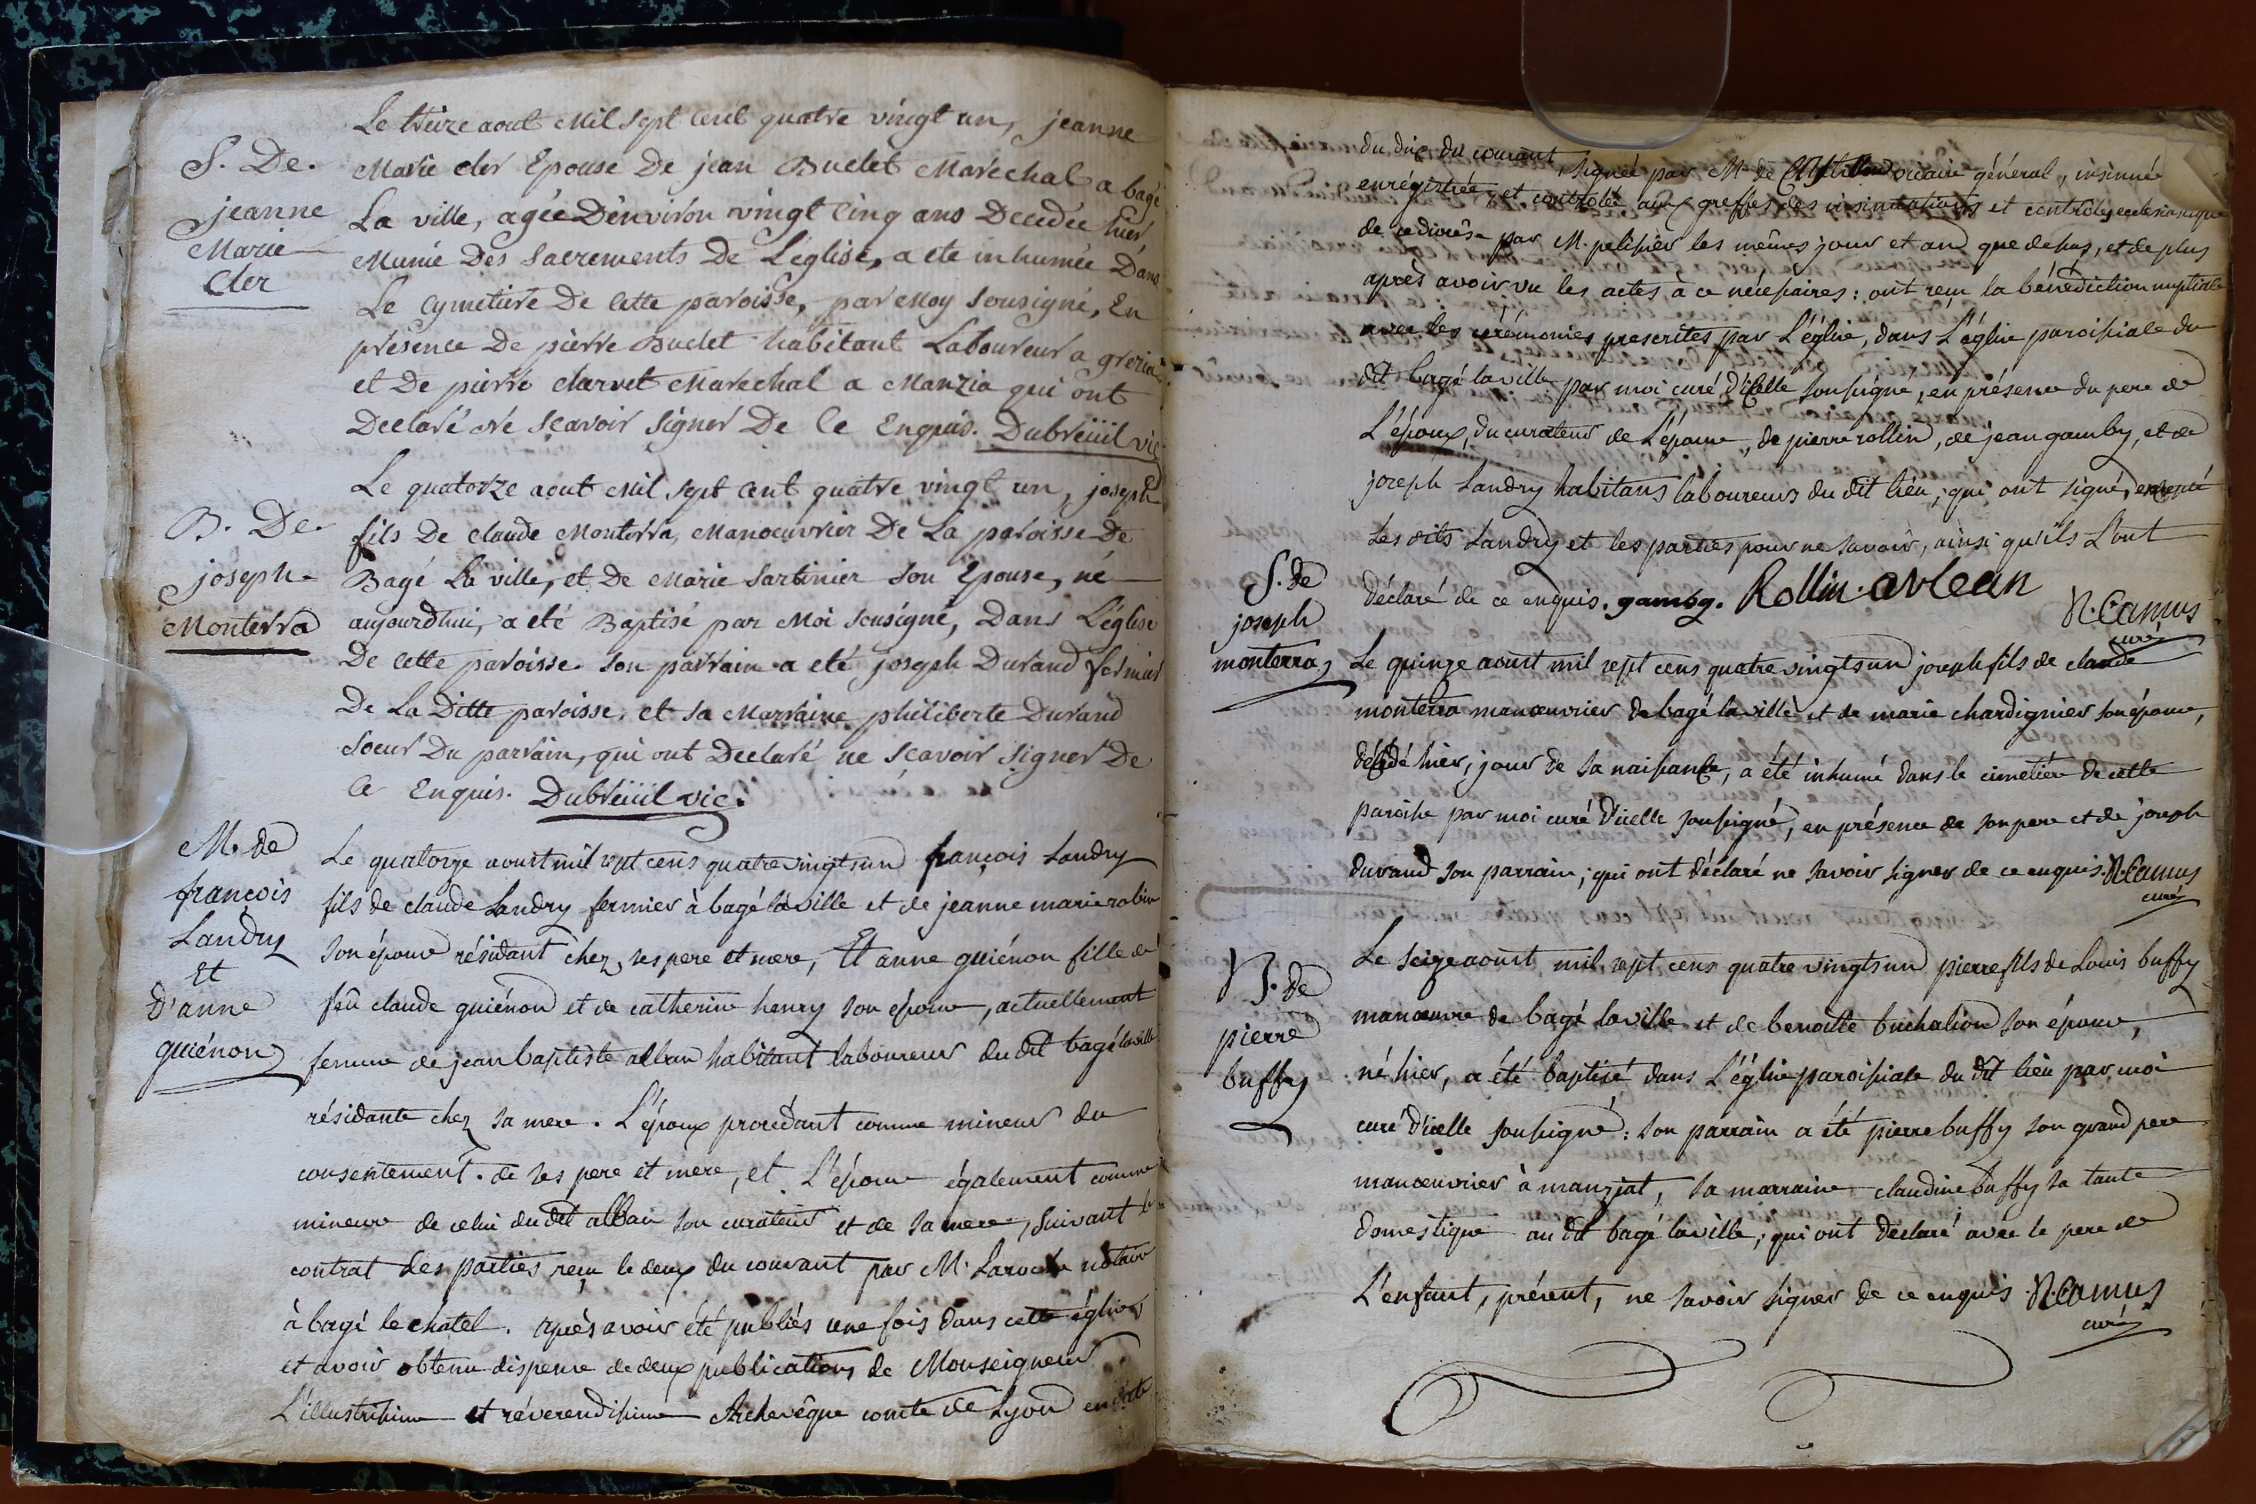 S. De.
jeanne
Marie
Cler
Le treize aout Mil sept cent quatre vingt un, jeanne
Marie cler Epouse De jean Buclet Marechal a bagé
La ville, agée D'environ vingt cinq ans Decedée hier,
Munie Des Sacrements De L'eglise, a ete inhumée Dans
Le Cymetiere De cette paroisse, par Moy Sousigné, En
présence De pierre Buclet habitant Laboureur a
et De pierre Marechal a Manzia qui ont
Declaré ne scavoir signer De Ce Enquis. Dubreüil vic.
B. De.
joseph
Monterra
Le quatorze aout Mil sept cent quatre vingt un, joseph
fils De claude Monterra, Manoeuvrier De La paroisse De
Bagé La ville, et De Marie Sartinier Son Epouse, né
aujourd'hui, a eté Baptisé par Moi Sousigné, Dans L'église
De cette paroisse. Son parrain a eté joseph Durand fermier
De La Ditte paroisse, et Sa Marraine philiberte Durand
Soeur Du parrain, qui ont Declaré ne scavoir signer De
Ce Enquis. Dubreüil vic.
M. de
françois
Landry
et
d'anne
guiénon
Le quatorze aoust mil sept cens quatre vingts un françois Landry
fils de claude Landry fermier à bagé la ville et de jeanne marie robin
son épouse résidant chez ses pere et mere, Et anne guiénon fille de
feu claude guiénon et de catherine henry son épouse, actuellement
femme de jean baptiste alban habitant laboureur du dit bagé la ville
résidante chez sa mere. L'époux procédant comme mineur du
consentement de ses pere et mere, et L'épouse également comme
mineure de celui du dit alban son curateur et de sa mere, suivant le
contrat des parties reçu le deux du courant par M. Laroche notaire
à bagé le chatel. après avoir été publiés une fois dans cette église,
et avoir obtenu dispense de deux publications de Monseigneur
L'illustrissime et réverendissime Archevêque comte de Lyon en date
du dix du courant, signée par M. de vicaire général, insinuée
enrégistrée, et controlée aux greffes des insinuations et controles ecclésiastiques
de ce diocèse par M. pelissier les mêmes jour et an que dessus, et de plus
après avoir vu les actes à ce nécessaires: ont reçu la bénédiction nuptiale
avec les cérémonies prescrites par L'église, dans L'église paroissiale du
dit bagé la ville par moi curé d'icelle soussigné, en présence du pere de
L'époux, du curateur de L'épouse, de pierre rollin, de jean gamby, et de
joseph Landry habitans laboureurs du dit lieu, qui ont signé, excepté
Les dits Landry et les parties pour ne savoir, ainsi qu'ils L'ont
déclaré de ce enquis. gamby. Rollin. N. Camus
curé
S. de
joseph
monterra
Le quinze aoust mil sept cens quatre vingts un joseph fils de claude
monterra manœuvrier de bagé la ville et de marie chardignier son épouse,
décédé hier, jour de sa naissance, a été inhumé dans le cimetière de cette
paroisse par moi curé d'icelle soussigné, en présence de son pere et de joseph
durand son parrain; qui ont déclaré ne savoir signer de ce enquis. N. Camus
curé
N. de
pierre
buffy
Le seize aoust mil sept cens quatre vingts un pierre fils de Louis buffy
manœuvre de bagé la ville et de benoitte buchalion son épouse,
né hier, a été baptisé dans L'église paroissiale du dit lieu par moi
curé d'icelle soussigné: son parrain a été pierre buffy son grand pere
manœuvrier à manziat, sa marraine claudine buffy sa tante
domestique au dit bagé la ville; qui ont déclaré avec le pere de
L'enfant, présent, ne savoir signer de ce enquis. N. Camus
curé